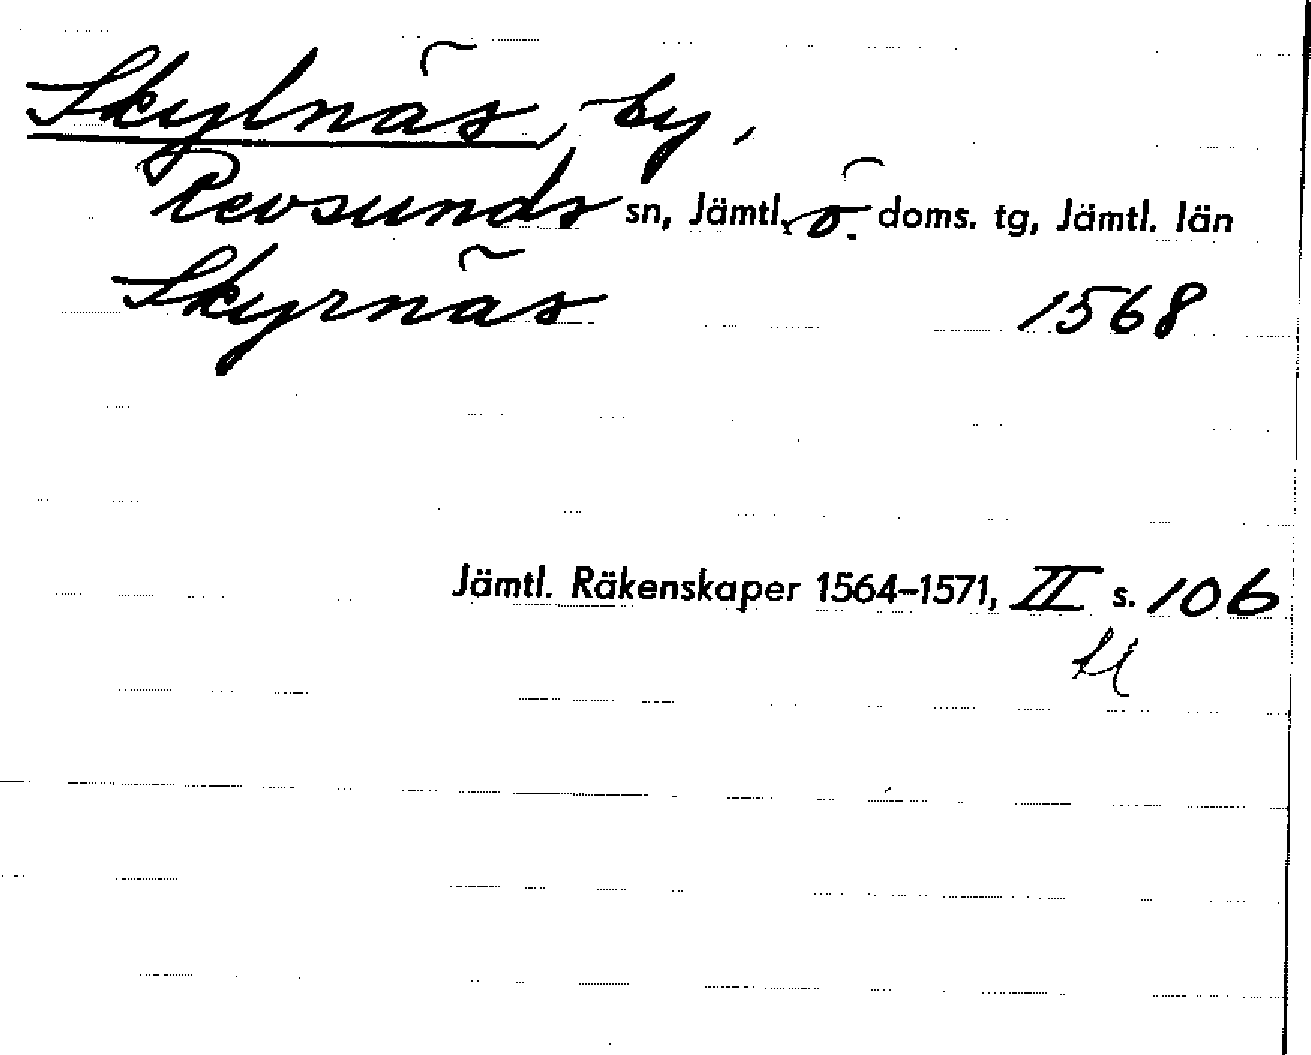 Skylnäs, by,
Revsunds sn, Jämtl. ö. doms. tg, Jämtl. län
Skyrnäs 1568
Jämtl. Räkenskaper 1564–1571, II s. 106